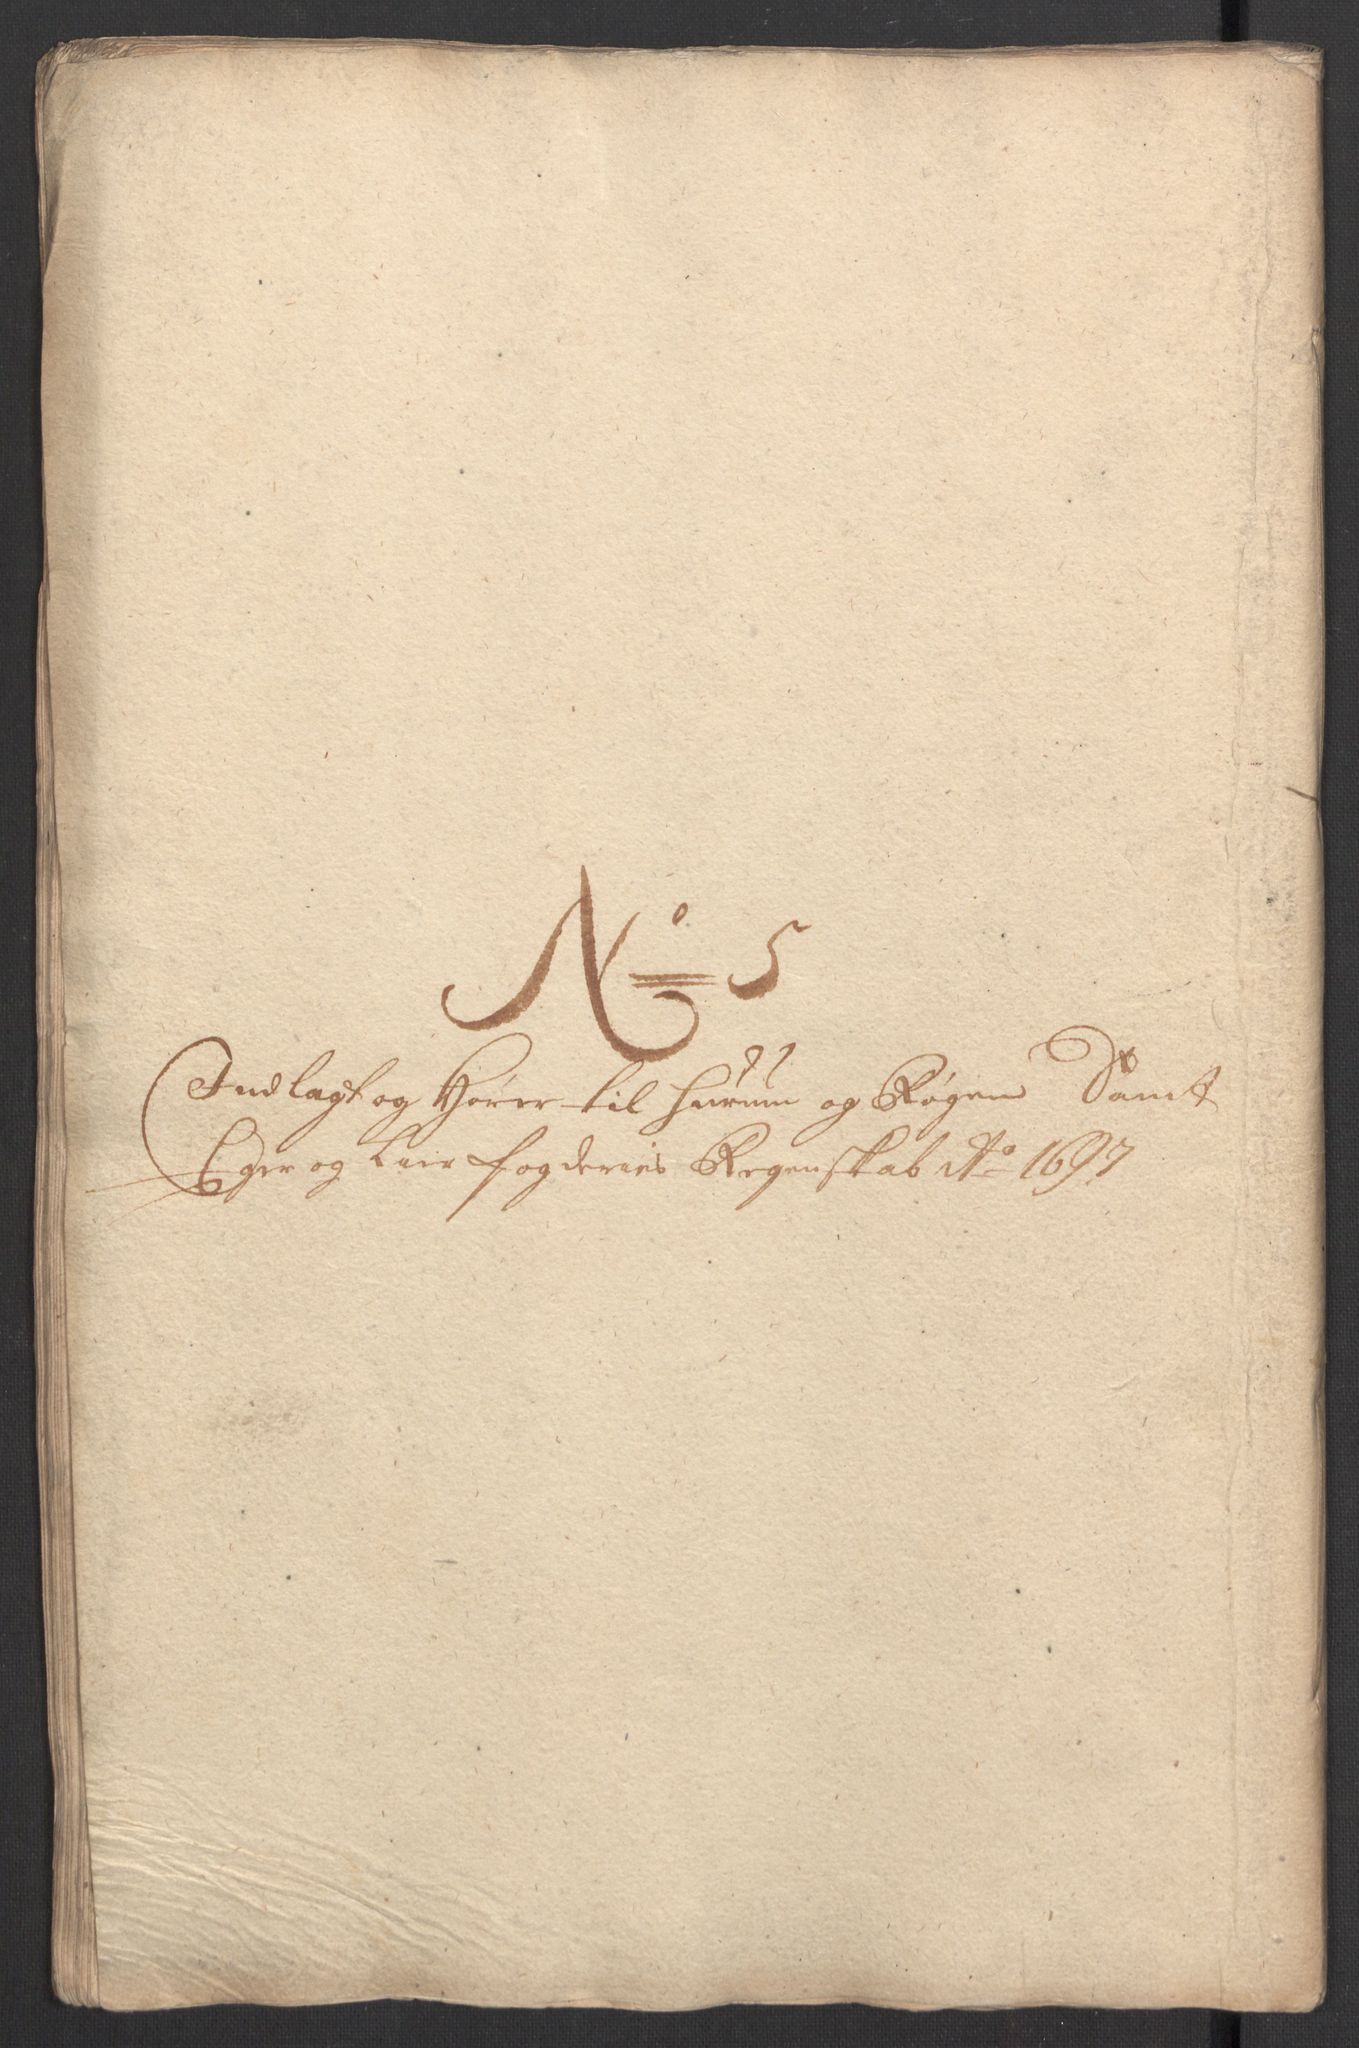 No 5
Indlagt og Hører til Hurum og Røgen Samt
Eger og Lier fogderies Regenskab Ao 1697